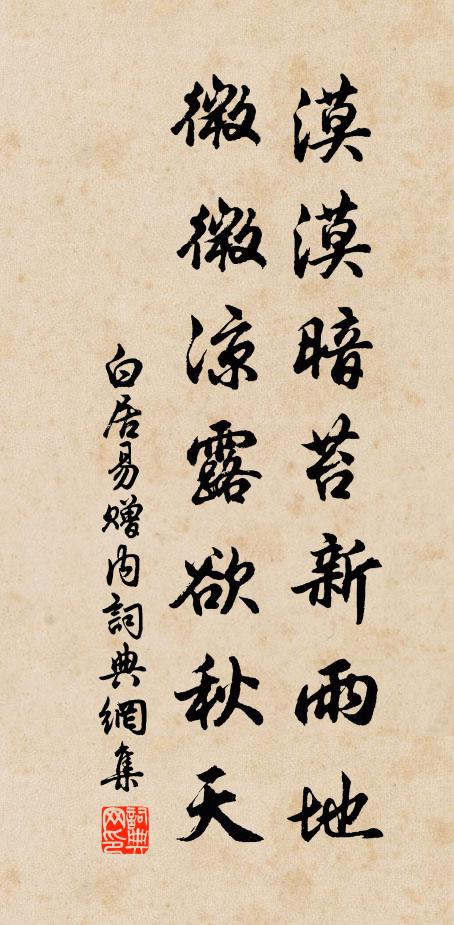 漠漠暗苔新雨地
微微凉露欲秋天
白居易贈内詞典網集
詞典网印